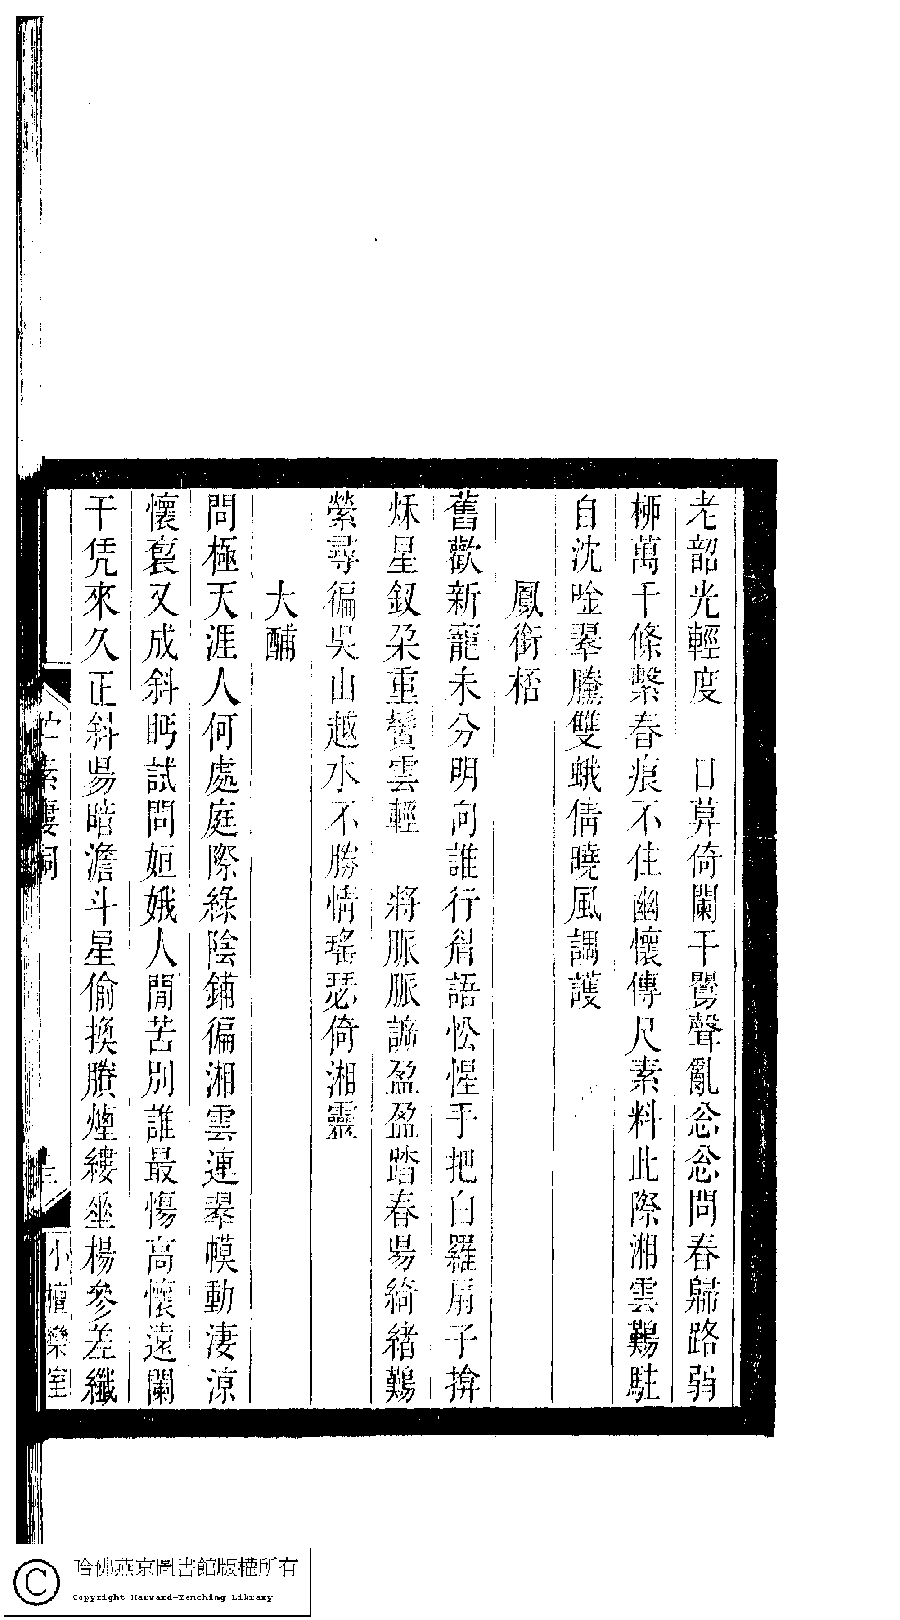 老韶光輕度　日算倚闌干鸎聲亂忿忿問春歸路弱
桺萬千條繫春痕不住幽懷傳尺素料此際湘雲難駐
自沈唫翠騰雙蛾倩曉風調護
鳳銜桮
舊歡新寵未分明向誰行絮語忪惺手把白羅扇子揜
烁星釵朵重鬢雲輕　將脈脈諦盈盈踏春昜綺緒難
縈尋徧吳山越水不勝情瑤瑟倚湘靈
大酺
問極天涯人何處庭際綠陰鋪徧湘雲連翠幙動淒涼
懷裏又成斜眄試問姮娥人閒苦別誰最慯高懷遠闌
干凭來久正斜昜暗澹斗星偷換賸煙縷坐楊參差纖
素廔詞
三
小檀欒室
哈佛燕京圖書館版權所有
Copyright Harvard-Yenching Library